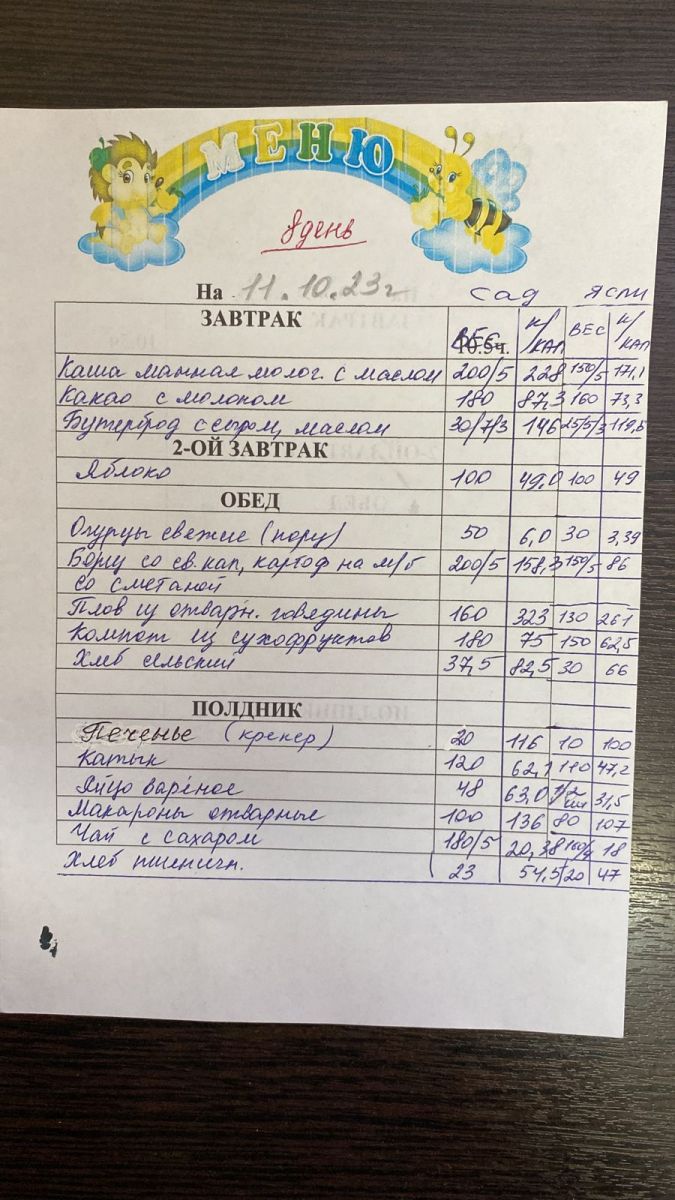 МЕНЮ
8 день
На 11.10.23г сад ясли
ЗАВТРАК ВЕС 10.5ч. к/кал вес к/кал
Каша манная молоч. с маслом 200/5 228 150/5 171,1
Какао с молоком 180 87,3 160 73,3
Бутерброд с сыром, маслом 30/7/3 146 25/5/3 119,5
2-ОЙ ЗАВТРАК
Яблоко 100 49,0 100 49
ОБЕД
Огурцы свежие (пору) 50 6,0 30 3,39
Борщ со св. кап, картоф на м/б 200/5 158,3 150/5 86
со сметаной
Плов из отварн. говядины 160 323 130 261
Компот из сухофруктов 180 75 150 62,5
Хлеб сельский 37,5 82,5 30 66
ПОЛДНИК
Печенье (крекер) 20 116 10 100
Катык 120 62,1 110 47,2
Яйцо варёное 48 63,0 1/2 шт 31,5
Макароны отварные 100 136 80 107
Чай с сахаром 180/5 20,38 160/4 18
Хлеб пшеничн. 23 54,5 20 47